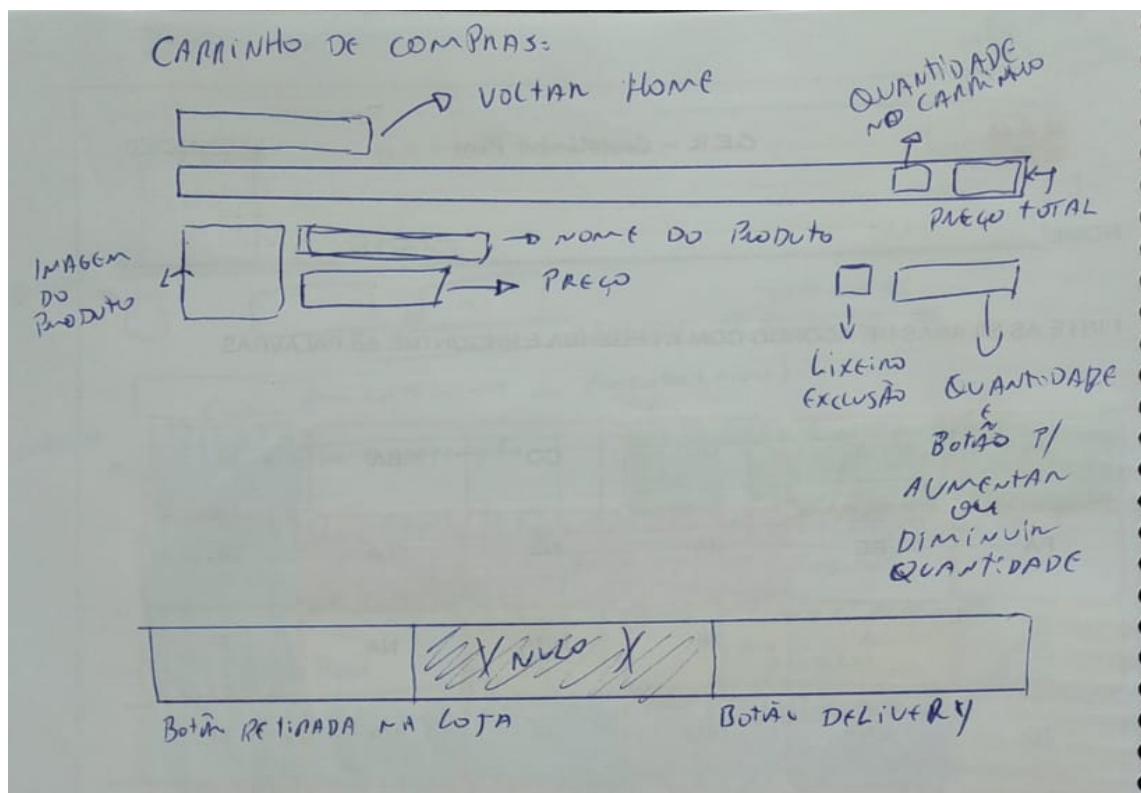 CARRINHO DE COMPRAS:
VOLTAR HOME
QUANTIDADE
NO CARRINHO
PREÇO TOTAL
NOME DO PRODUTO
PREÇO
IMAGEM
DO
PRODUTO
LIXEIRO
EXCLUSÃO
QUANTIDADE
E
BOTÃO P/
AUMENTAR
OU
DIMINUIR
QUANTIDADE
X NULO X
BOTÃO RETIRADA NA LOJA
BOTÃO DELIVERY